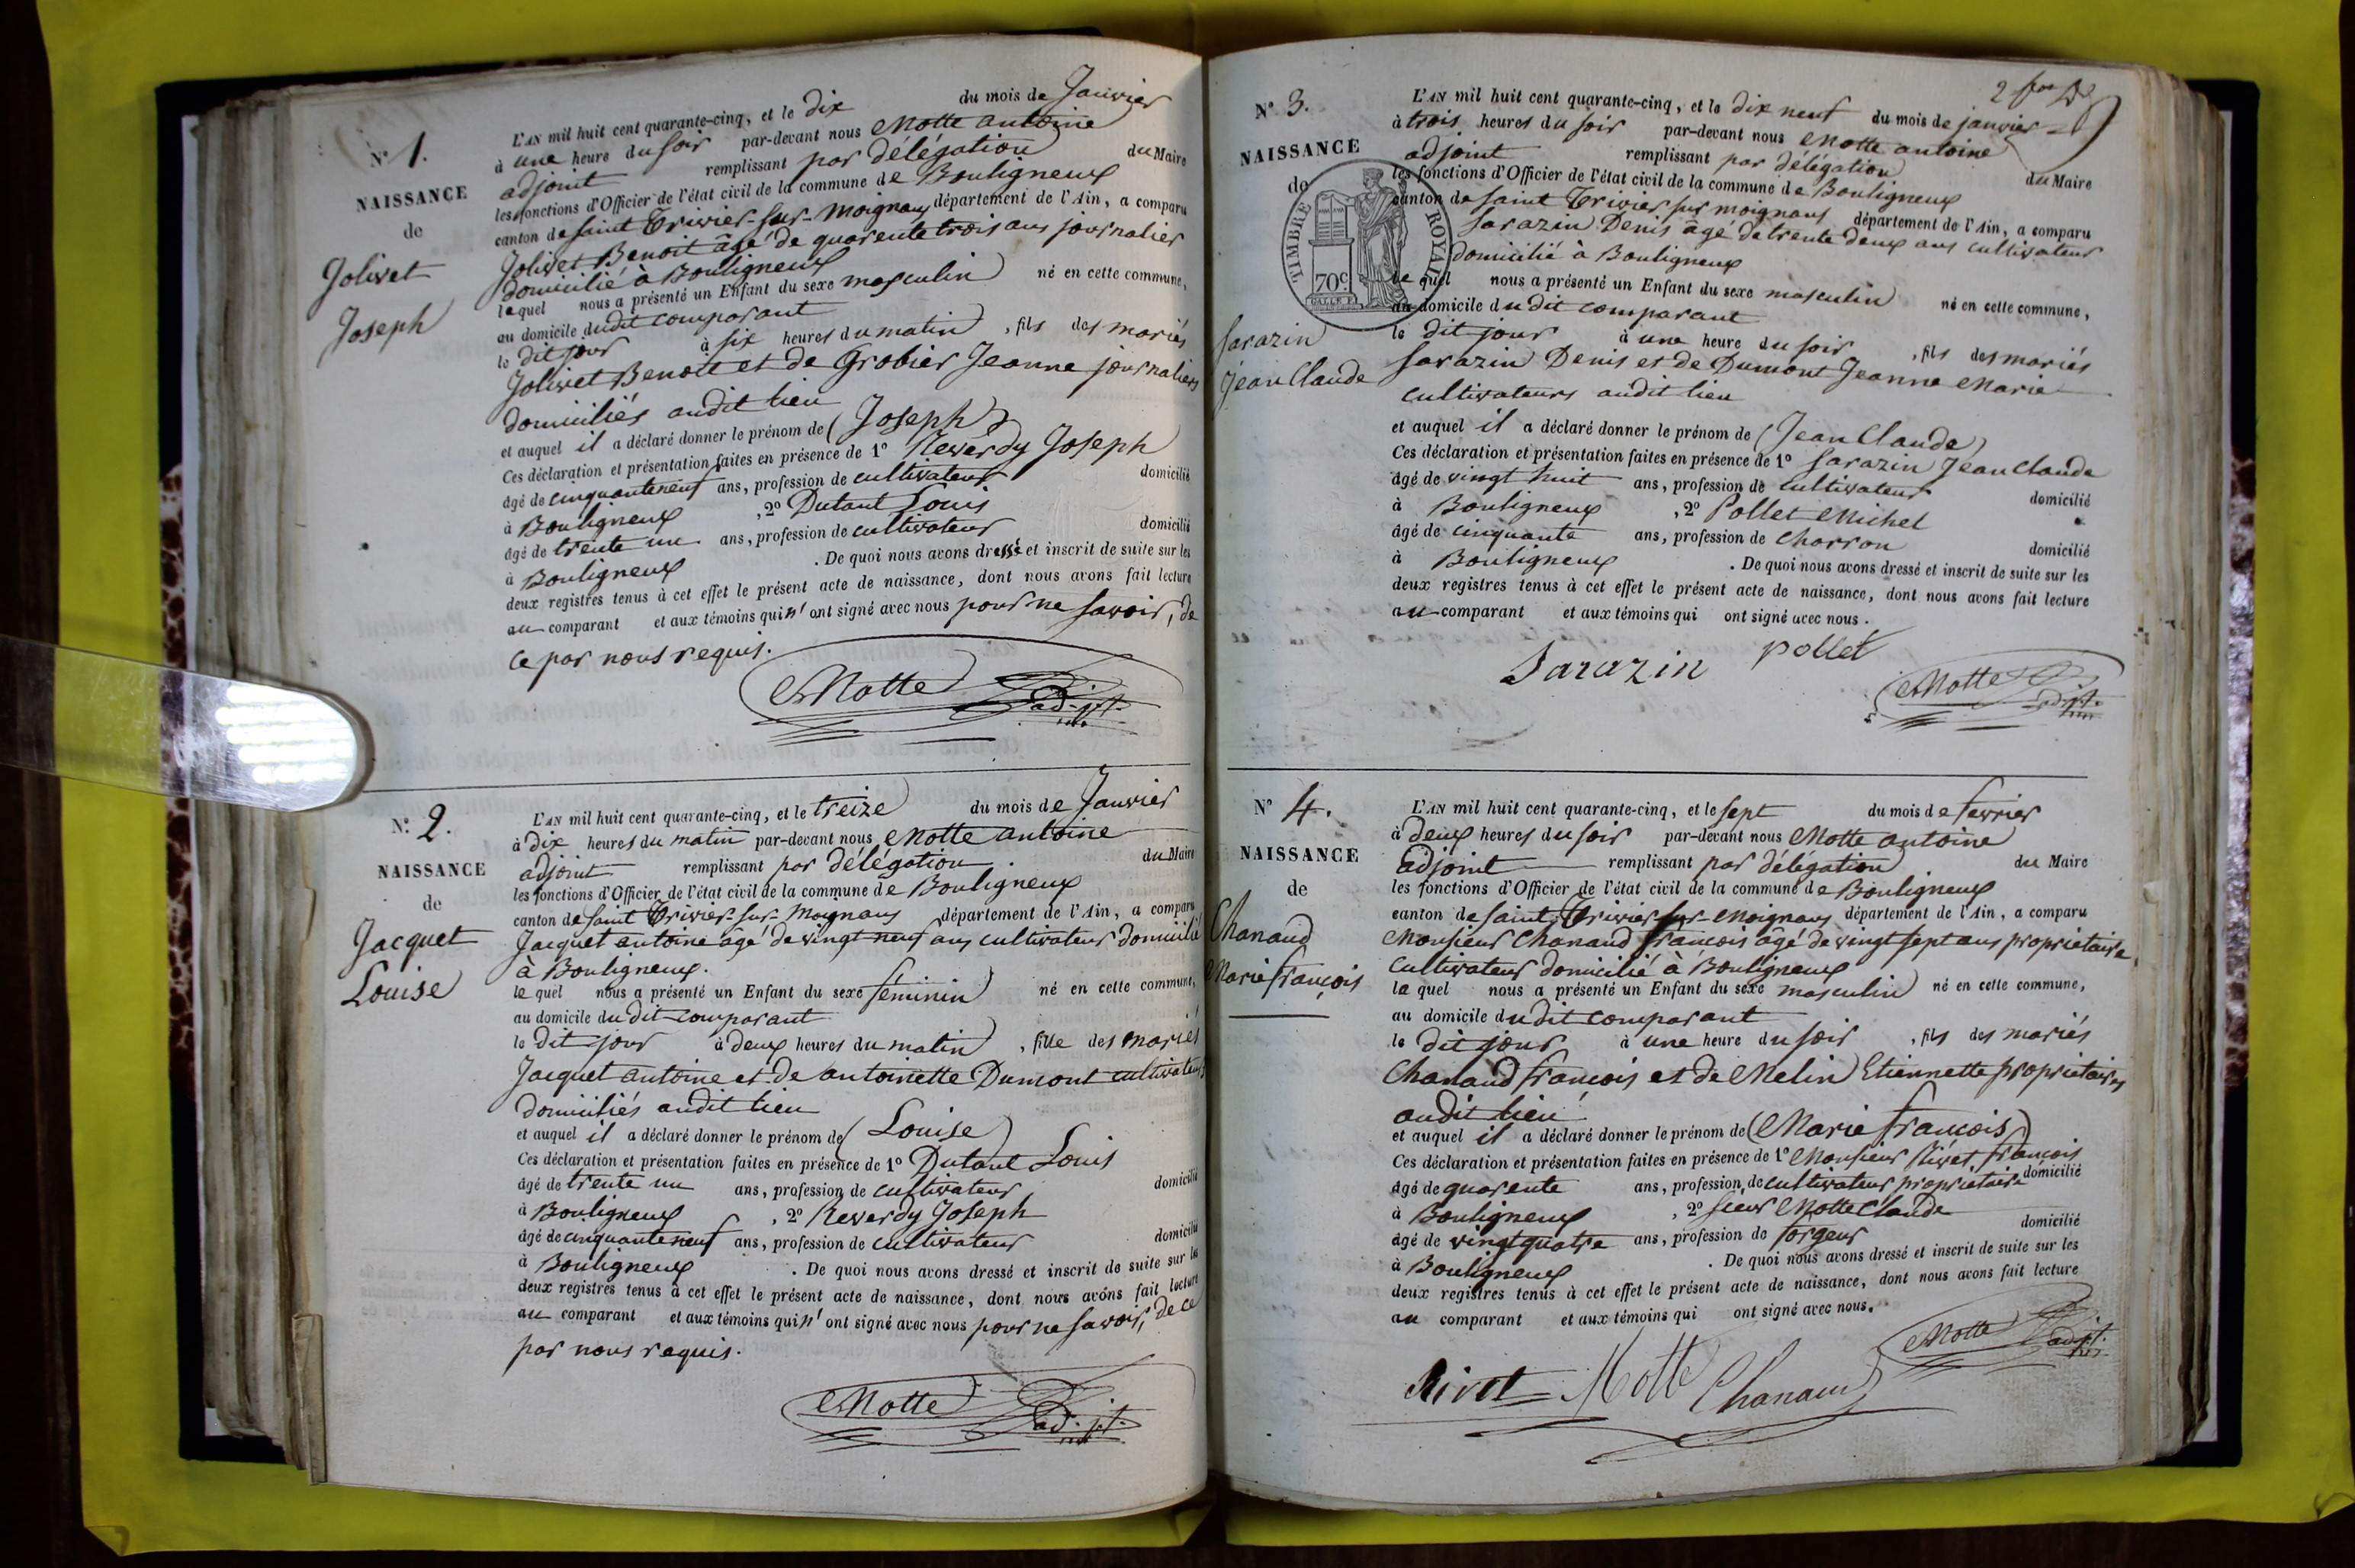 N° 1.
NAISSANCE
de
Jolivet
Joseph
L'AN mil huit cent quarante-cinq, et le dix du mois de Janvier
à une heure du soir par-devant nous Motte antoine
adjoint remplissant par délégation du Maire
les fonctions d'Officier de l'état civil de la commune de Bouligneux
canton de saint Trivier-sur-moignans département de l'Ain, a comparu
Jolivet Benoit âgé de quarente trois ans journalier
domicilié à Bouligneux
lequel nous a présenté un Enfant du sexe masculin né en cette commune,
au domicile dudit comparant
le dit jour à six heures du matin, fils des mariés
Jolivet Benoit et de Grobier Jeanne journaliers
domiciliés audit lieu
et auquel il a déclaré donner le prénom de (Joseph)
Ces déclaration et présentation faites en présence de 1° Reverdy Joseph
âgé de cinquanteneuf ans, profession de cultivateur domicilié
à Bouligneux, 2° Dutant Louis
âgé de trente un ans, profession de cultivateur domicilié
à Bouligneux. De quoi nous avons dressé et inscrit de suite sur les
deux registres tenus à cet effet le présent acte de naissance, dont nous avons fait lecture
au comparant et aux témoins qui n'ont signé avec nous pour ne savoir, de
ce par nous requis.
Motte adjt.
N° 2.
NAISSANCE
de
Jacquet
Louise
L'AN mil huit cent quarante-cinq, et le treize du mois de Janvier
à dix heures du matin par-devant nous Motte antoine
adjoint remplissant par délégation du Maire
les fonctions d'Officier de l'état civil de la commune de Bouligneux
canton de saint Trivier-sur-Moignans département de l'Ain, a comparu
Jacquet antoine âgé de vingt neuf ans cultivateur domicilié
à Bouligneux.
lequel nous a présenté un Enfant du sexe féminin né en cette commune,
au domicile dudit comparant
le dit jour à deux heures du matin, fille des mariés
Jacquet antoine et de antoinette Dumont cultivateurs
domiciliés audit lieu
et auquel il a déclaré donner le prénom de (Louise)
Ces déclaration et présentation faites en présence de 1° Dutant Louis
âgé de trente un ans, profession de cultivateur domicilié
à Bouligneux, 2° Reverdy Joseph
âgé de cinquanteneuf ans, profession de cultivateur domicilié
à Bouligneux. De quoi nous avons dressé et inscrit de suite sur les
deux registres tenus à cet effet le présent acte de naissance, dont nous avons fait lecture
au comparant et aux témoins qui n'ont signé avec nous pour ne savoir, de ce
par nous requis.
Motte adjt.
2
N° 3.
NAISSANCE
de
TIMBRE ROYAL
70c
Sarazin
Jean Claude
L'AN mil huit cent quarante-cinq, et le dix neuf du mois de janvier
à trois heures du soir par-devant nous Motte antoine
adjoint remplissant par délégation du Maire
les fonctions d'Officier de l'état civil de la commune de Bouligneux
canton de saint Trivier sur moignans département de l'Ain, a comparu
Sarazin Denis âgé de trente deux ans cultivateur
domicilié à Bouligneux
lequel nous a présenté un Enfant du sexe masculin né en cette commune,
au domicile dudit comparant
le dit jour à une heure du soir, fils des mariés
Sarazin Denis et de Dumont Jeanne Marie
cultivateurs audit lieu
et auquel il a déclaré donner le prénom de (Jean Claude)
Ces déclaration et présentation faites en présence de 1° Sarazin Jean Claude
âgé de vingt huit ans, profession de cultivateur domicilié
à Bouligneux, 2° Pollet Michel
âgé de cinquante ans, profession de charron domicilié
à Bouligneux. De quoi nous avons dressé et inscrit de suite sur les
deux registres tenus à cet effet le présent acte de naissance, dont nous avons fait lecture
au comparant et aux témoins qui ont signé avec nous.
Sarazin pollet
Motte adjt.
N° 4.
NAISSANCE
de
Chanaud
Marie françois
L'AN mil huit cent quarante-cinq, et le sept du mois de fevrier
à deux heures du soir par-devant nous Motte antoine
adjoint remplissant par délégation du Maire
les fonctions d'Officier de l'état civil de la commune de Bouligneux
canton de saint Trivier sur Moignans département de l'Ain, a comparu
Monsieur Chanaud françois âgé de vingt sept ans propriétaire
cultivateur domicilié à Bouligneux
lequel nous a présenté un Enfant du sexe masculin né en cette commune,
au domicile dudit comparant
le dit jour à une heure du soir, fils des mariés
Chanaud françois et de Melin Etiennette propriétaires
audit lieu
et auquel il a déclaré donner le prénom de (Marie françois)
Ces déclaration et présentation faites en présence de 1° Monsieur Rivet françois
âgé de quarente ans, profession de cultivateur propriétaire domicilié
à Bouligneux, 2° sieur Motte Claude
âgé de vingtquatre ans, profession de forgeur domicilié
à Bouligneux. De quoi nous avons dressé et inscrit de suite sur les
deux registres tenus à cet effet le présent acte de naissance, dont nous avons fait lecture
au comparant et aux témoins qui ont signé avec nous.
Motte adjt.
Rivet Motte Chanaud